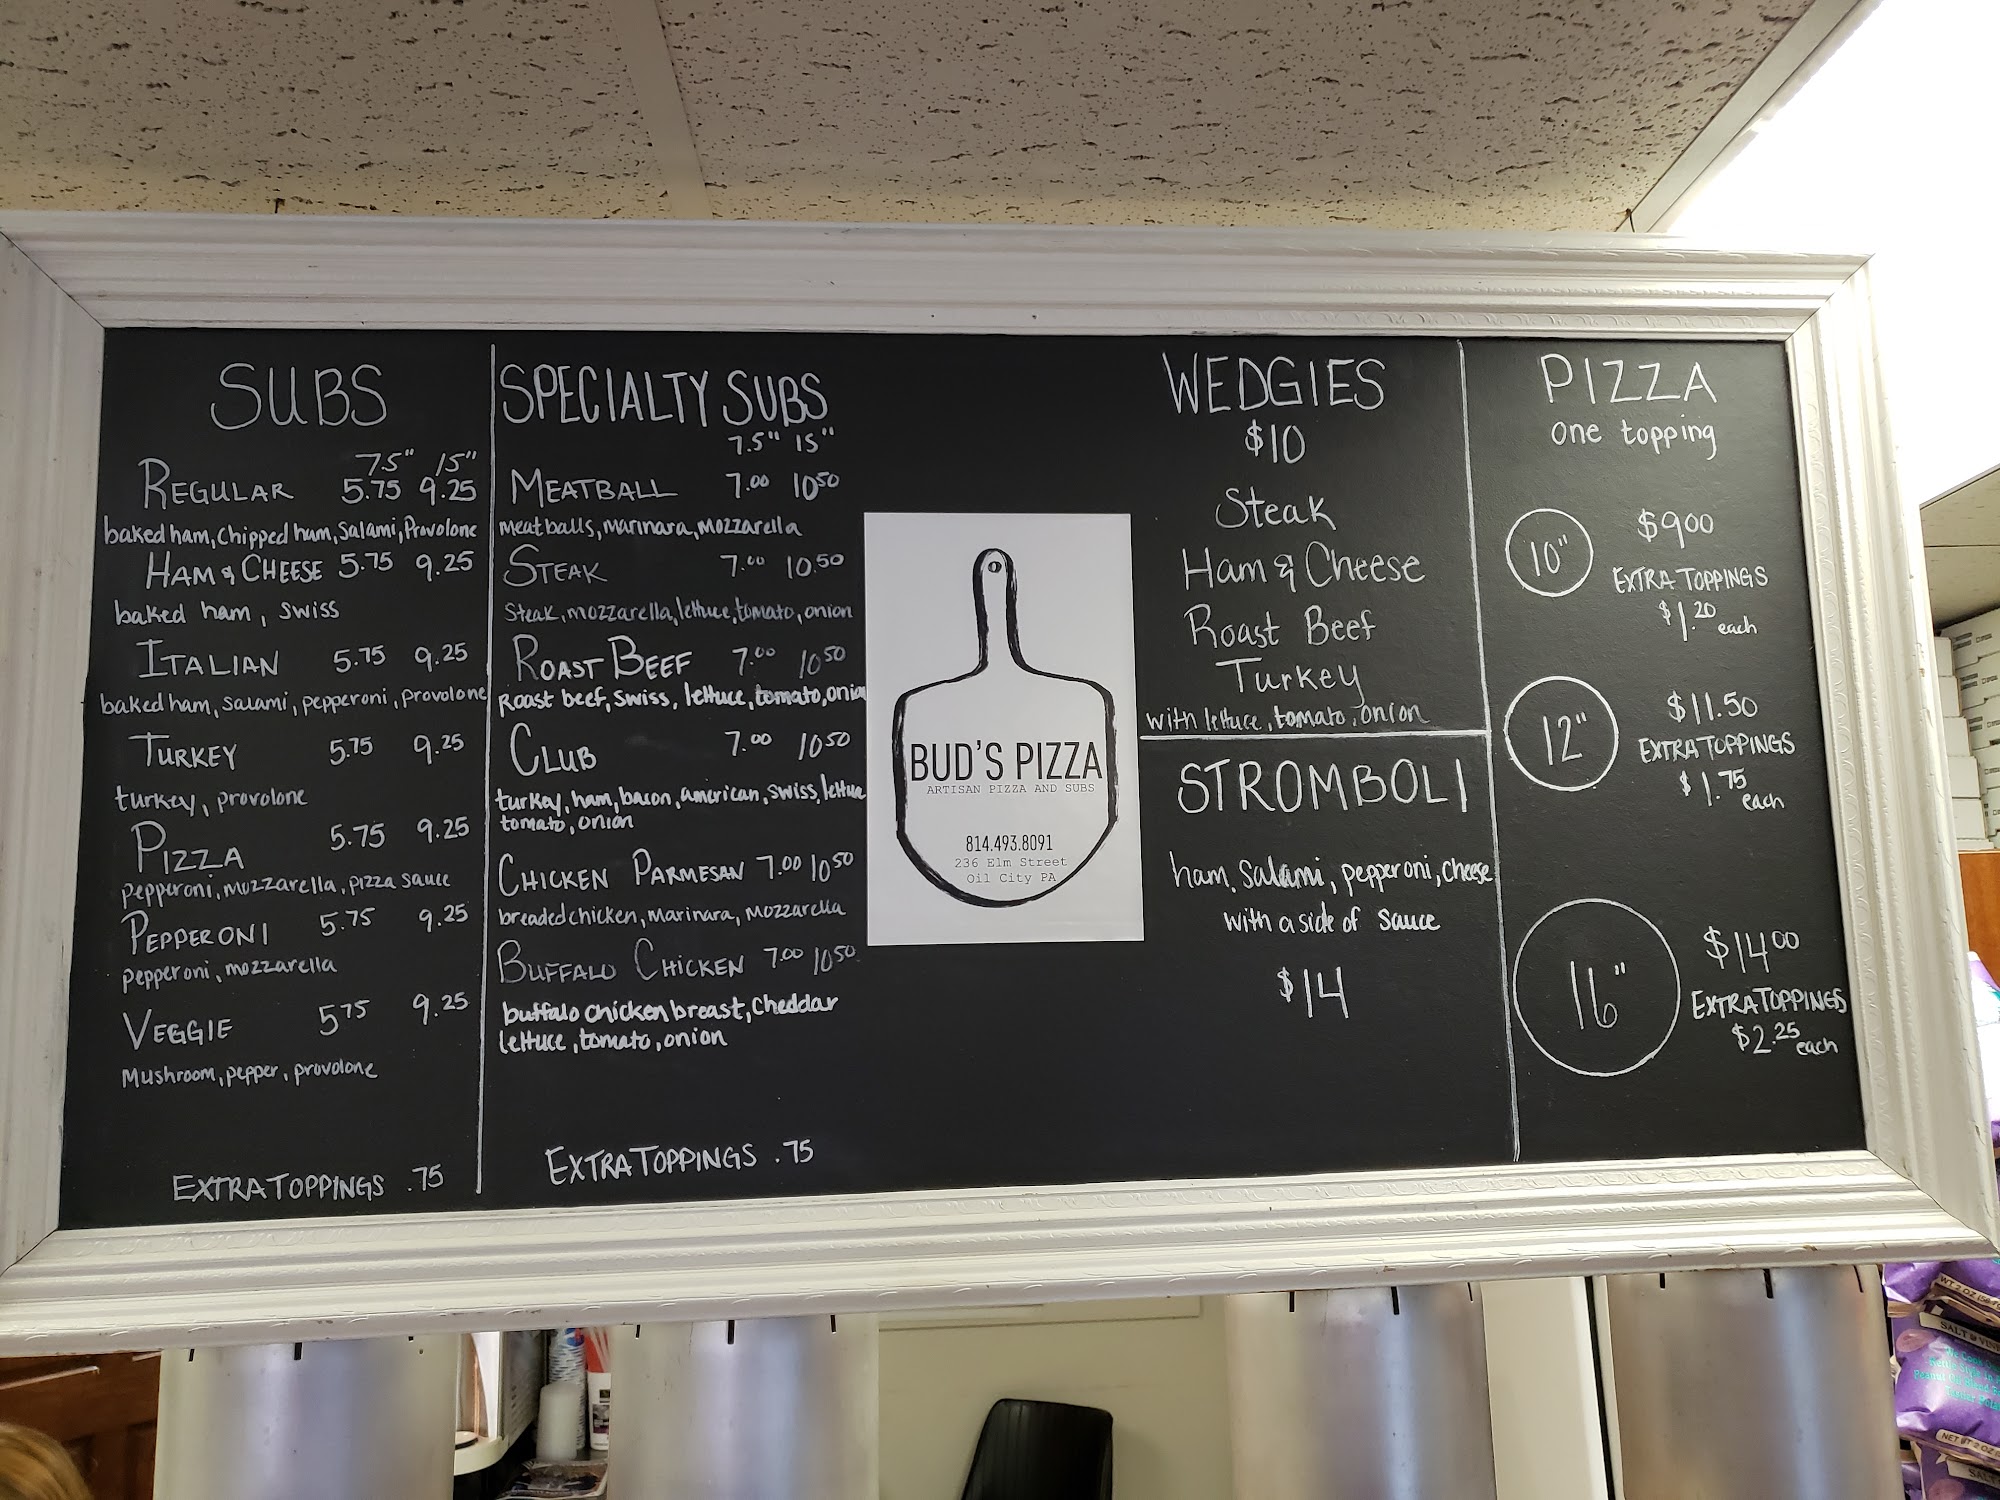 SUBS
7.5" 15"
REGULAR 5.75 9.25
baked ham, chipped ham, Salami, Provolone
HAM & CHEESE 5.75 9.25
baked ham, swiss
ITALIAN 5.75 9.25
baked ham, salami, pepperoni, provolone
TURKEY 5.75 9.25
turkey, provolone
PIZZA 5.75 9.25
pepperoni, mozzarella, pizza sauce
PEPPERONI 5.75 9.25
pepperoni, mozzarella
VEGGIE 5.75 9.25
Mushroom, pepper, provolone
EXTRA TOPPINGS .75
SPECIALTY SUBS
7.5" 15"
MEATBALL 7.00 10.50
Meatballs, marinara, mozzarella
STEAK 7.00 10.50
Steak, mozzarella, lettuce, tomato, onion
ROAST BEEF 7.00 10.50
Roast beef, Swiss, lettuce, tomato, onion
CLUB 7.00 10.50
turkey, ham, bacon, american, swiss, lettuce
tomato, onion
CHICKEN PARMESAN 7.00 10.50
breaded chicken, marinara, mozzarella
BUFFALO CHICKEN 7.00 10.50
buffalo chicken breast, Cheddar
lettuce, tomato, onion
EXTRA TOPPINGS .75
BUD'S PIZZA
ARTISAN PIZZA AND SUBS
814.493.8091
236 Elm Street
Oil City PA
WEDGIES
$10
Steak
Ham & Cheese
Roast Beef
Turkey
with lettuce, tomato, onion
STROMBOLI
ham, Salami, pepperoni, cheese
with a side of sauce
$14
PIZZA
one topping
10" $9.00
EXTRA TOPPINGS
$1.20 each
12" $11.50
EXTRA TOPPINGS
$1.75 each
16" $14.00
EXTRA TOPPINGS
$2.25 each